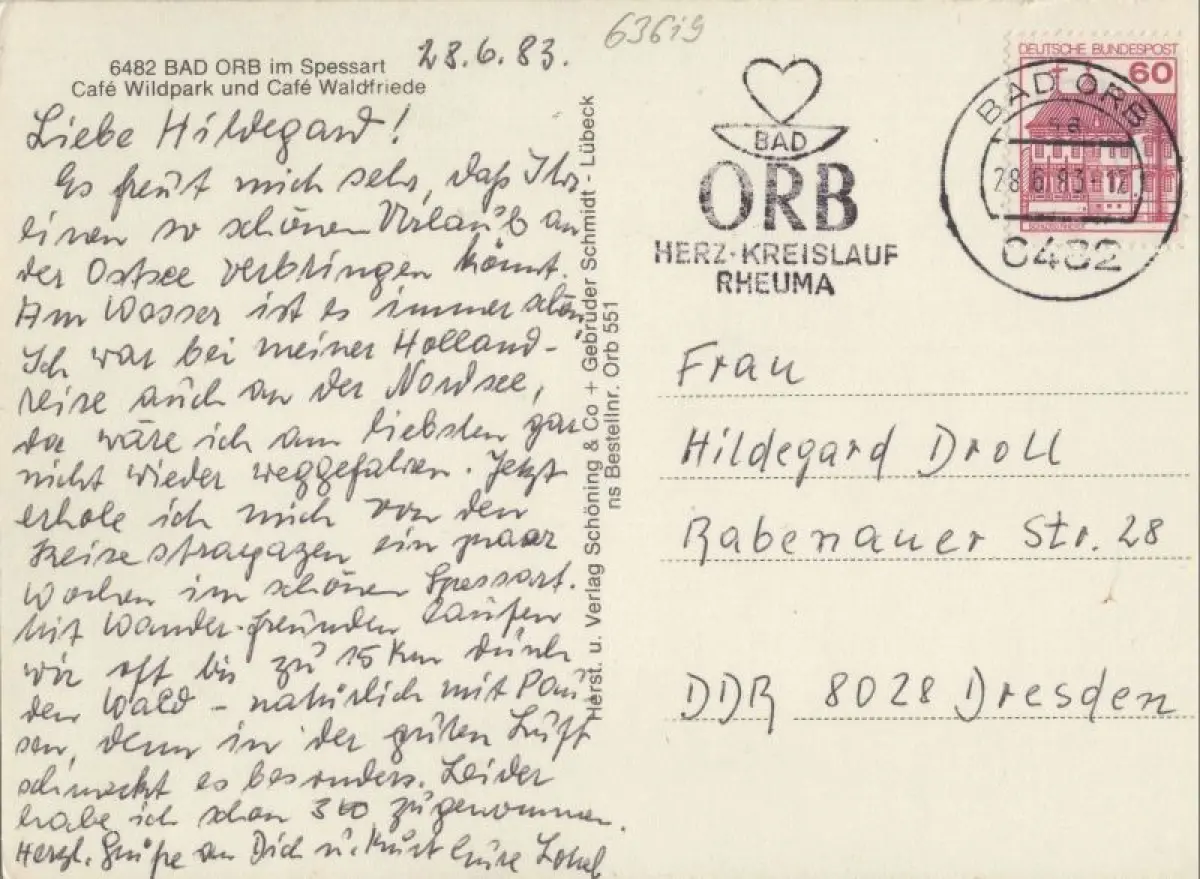 63619
28.6.83.
6482 BAD ORB im Spessart
Café Wildpark und Café Waldfriede
Liebe Hildegard!
Es freut mich sehr, daß Ihr
einen so schönen Urlaub an
der Ostsee verbringen könnt.
Am Wasser ist es immer schön.
Ich war bei meiner Holland-
reise auch an der Nordsee,
da wäre ich am liebsten gar
nicht wieder weggefahren. Jetzt
erhole ich mich von den
Reisestrapazen ein paar
Wochen im schönen Spessart.
Mit Wander-freunden laufen
wir oft bis zu 15 Km durch
den Wald - natürlich mit Pau
sen, denn in der guten Luft
schmeckt es besonders. Leider
habe ich schon 3 zugenommen.
Herzl. Grüße an Dich u. Kurt Eure
Herst. u. Verlag Schöning & Co + Gebrüder Schmidt - Lübeck
ns Bestellnr. Orb 551
BAD
ORB
HERZ-KREISLAUF
RHEUMA
DEUTSCHE BUNDESPOST
60
BAD ORB
sa
28.6.83-12
6482
Frau
Hildegard Droll
Rabenauer Str. 28
DDR 8028 Dresden